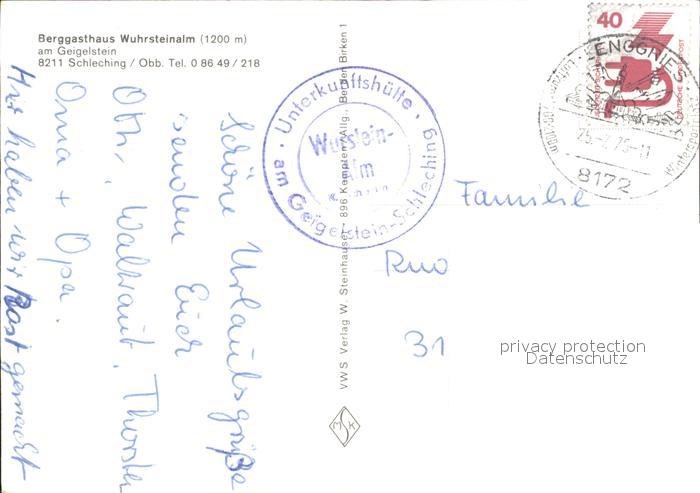 Berggasthaus Wuhrsteinalm (1200 m)
am Geigelstein
8211 Schleching / Obb. Tel. 0 86 49 / 218
Schöne Urlaubsgrüße
senden Euch
Otti, Waltraut, Thorsten
Oma + Opa.
Hier haben wir Rast gemacht
· Unterkunftshütte ·
Wuhrstein-
Alm
am Geigelstein-Schleching
VWS Verlag W. Steinhauser, 896 Kempten/Allg., Bei den Birken 1
MSK
40
DEUTSCHE BUNDESPOST
LENGGRIES
8172
Familie
31
privacy protection
Datenschutz